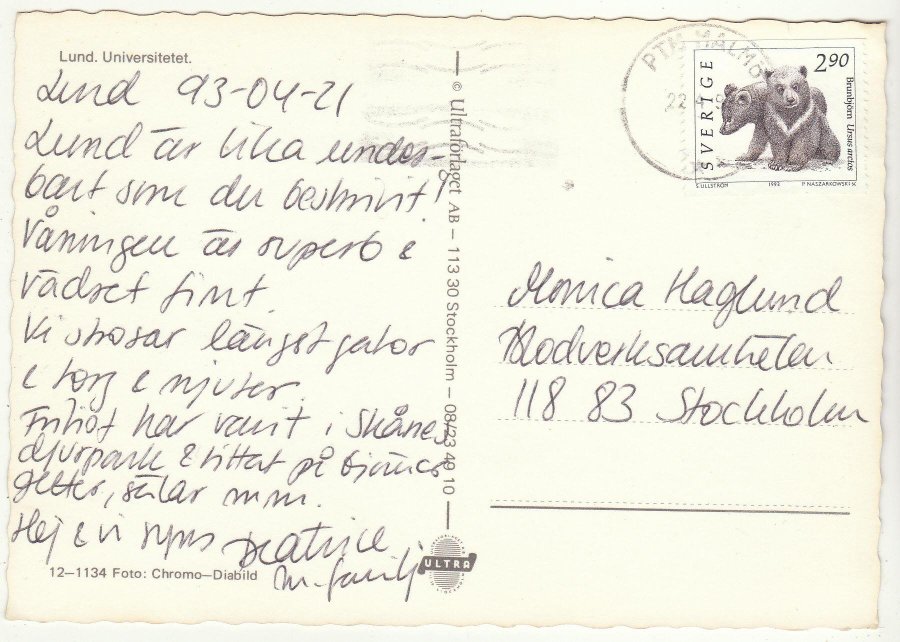 Lund. Universitetet.
Lund 93-04-21
Lund är lika under-
bart som du beskrivit!
Våningen är superb &
vädret fint
Vi strosar längst gator
& torg & njuter.
Fritiof har varit i Skånes
djurpark & tittat på björnar
getter, sälar m.m.
Hej & vi syns Beatrice
m. familj
12–1134 Foto: Chromo–Diabild
© Ultraförlaget AB – 113 30 Stockholm – 08/23 49 10
ULTRA
PTK MALMÖ
22 4
SVERIGE
2.90
Brunbjörn Ursus arctos
S.ULLSTRÖM 1993 P.NASZARKOWSKI SC
Monica Haglund
118 83 Stockholm